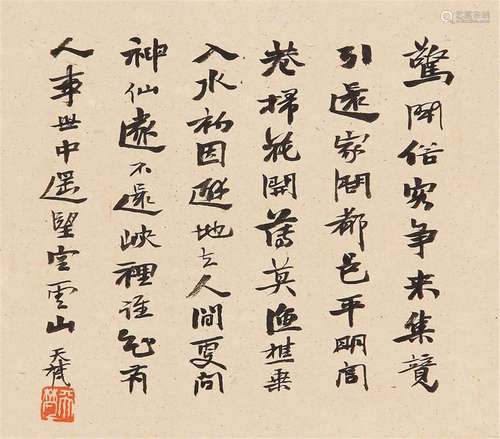 驚聞俗客争来集競
引還家問都邑平明閭
巷掃花開薄莫漁樵乘
入水初因避地去人間更問
神仙遂不還峽裡誰知有
人事世中遥望空雲山